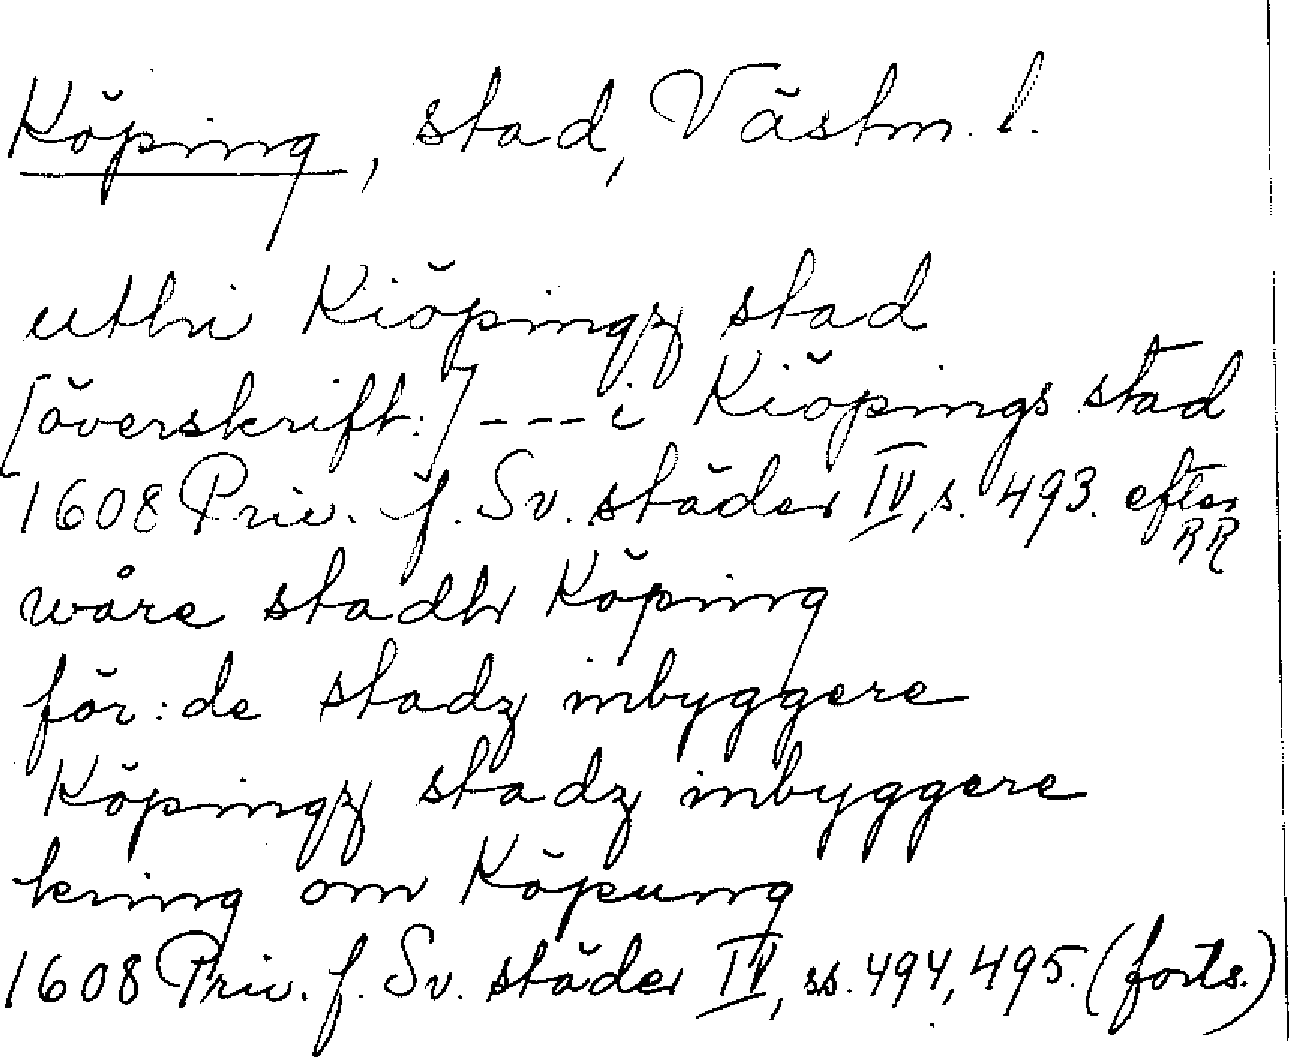 Köping, stad, Västm. l.
uthi Kiöpingz stad
[överskrift.] --- i Kiöpings stad
1608 Priv. f. Sv. städer IV, s. 493. efter RR
wåre stadh Köping
för:de stadz inbyggere
Köpingz stadz inbyggere
kring om Köpung
1608 Priv. f. Sv. städer IV, ss. 494, 495. (forts.)